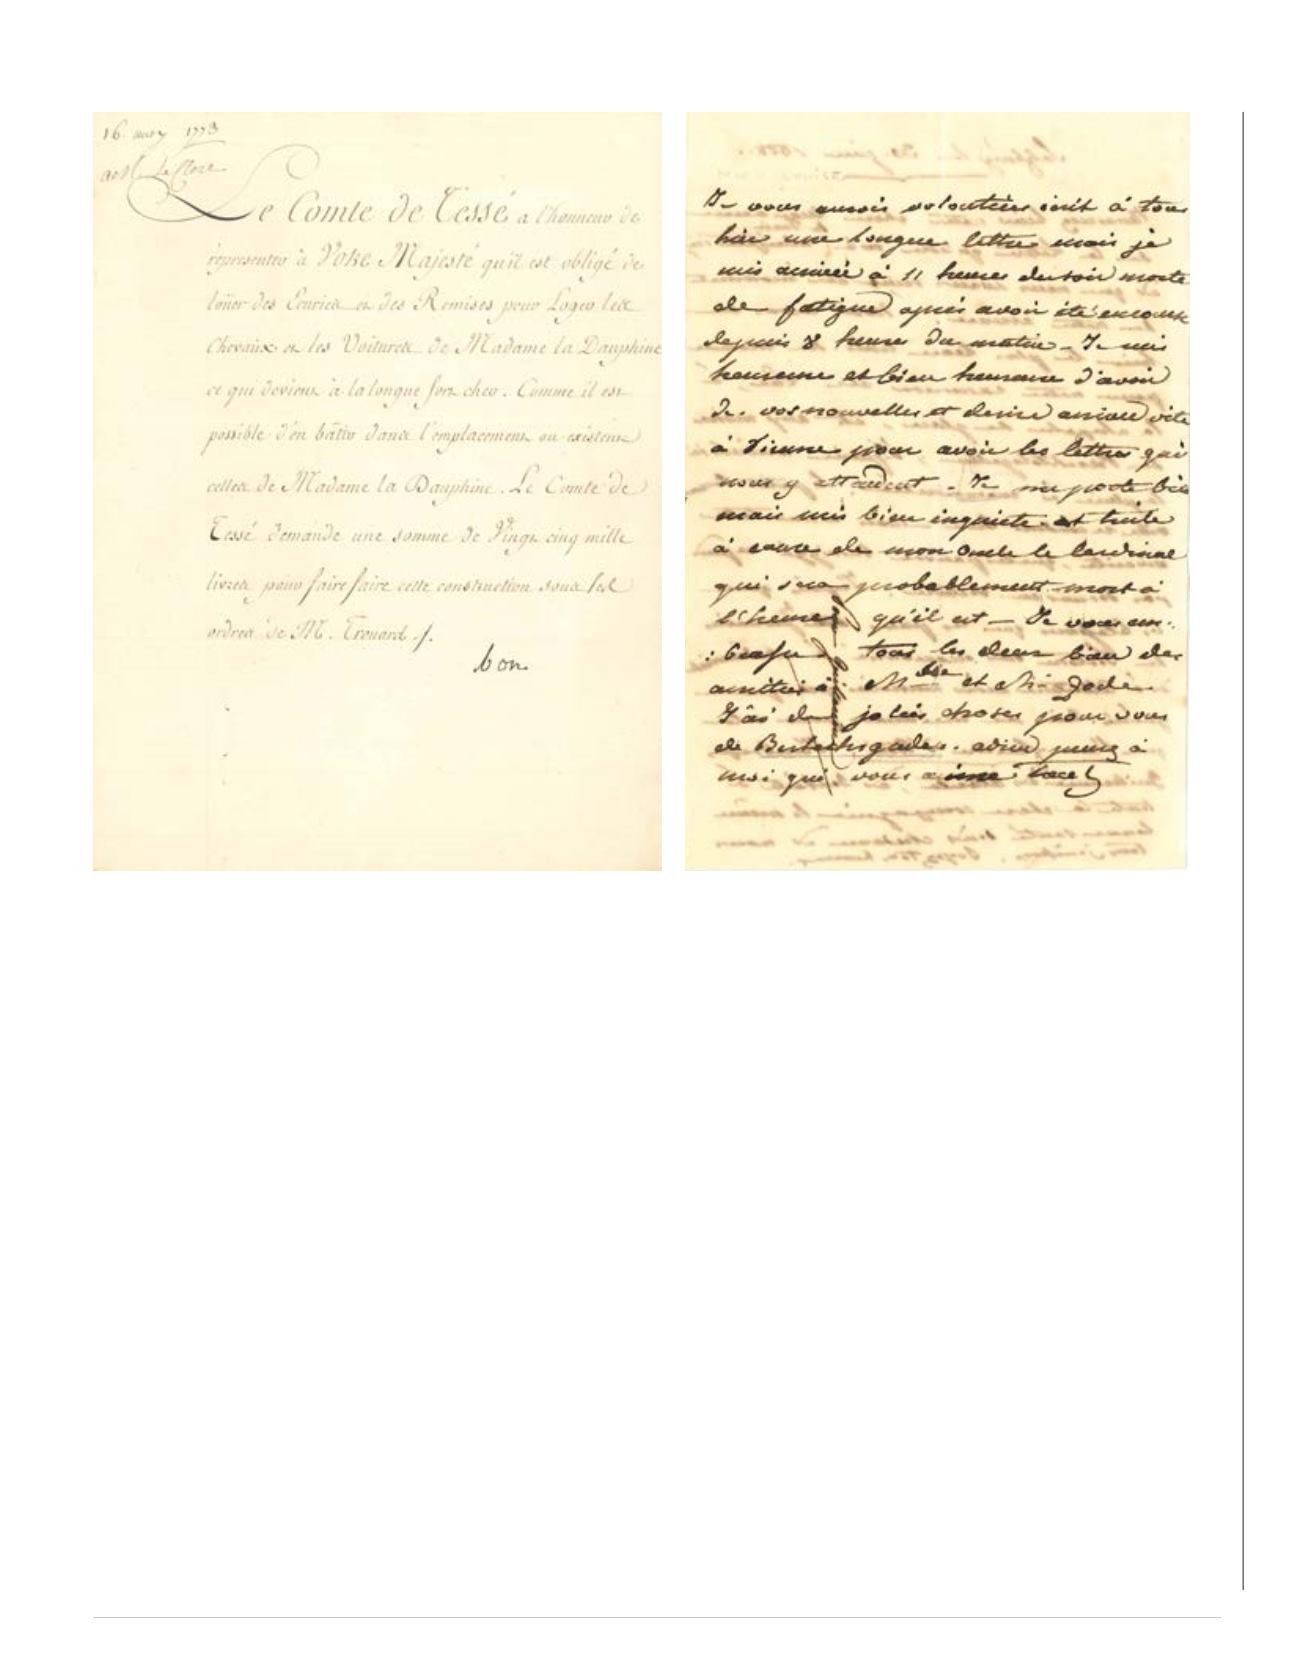 16. mars 1773
Le Comte de Tessé a l'honneur de
representer à Votre Majesté qu'il est obligé de
loüer des Ecuries et des Remises pour Loger les
Chevaux et les Voitures de Madame la Dauphine
ce qui devient à la longue fort cher. Comme il est
possible d'en bâtir dans l'emplacement ou existent
celles de Madame la Dauphine. Le Comte de
Tessé demande une somme de Vingt cinq mille
livres pour faire faire cette construction sous les
ordres de M. Trouard
bon
Je vous aurois volontiers écrit à tous
hier une longue lettre mais je
suis arrivée à 11 heures du soir morte
de fatigue après avoir été en course
depuis 8 heures du matin - Je suis
heureuse et bien heureuse d'avoir
de vos nouvelles et desire arriver vite
à Vienne pour avoir les lettres qui
nous y attendent - Je me porte bien
mais suis bien inquiete et triste
à cause de mon Oncle le Cardinal
qui sera probablement mort à
l'heure qu'il est - Je vous em:
:brasse tous les deux bien des
amitiés à Mde et Mr
J'ai de jolies choses pour vous
de adieu pensez à
moi qui vous aime